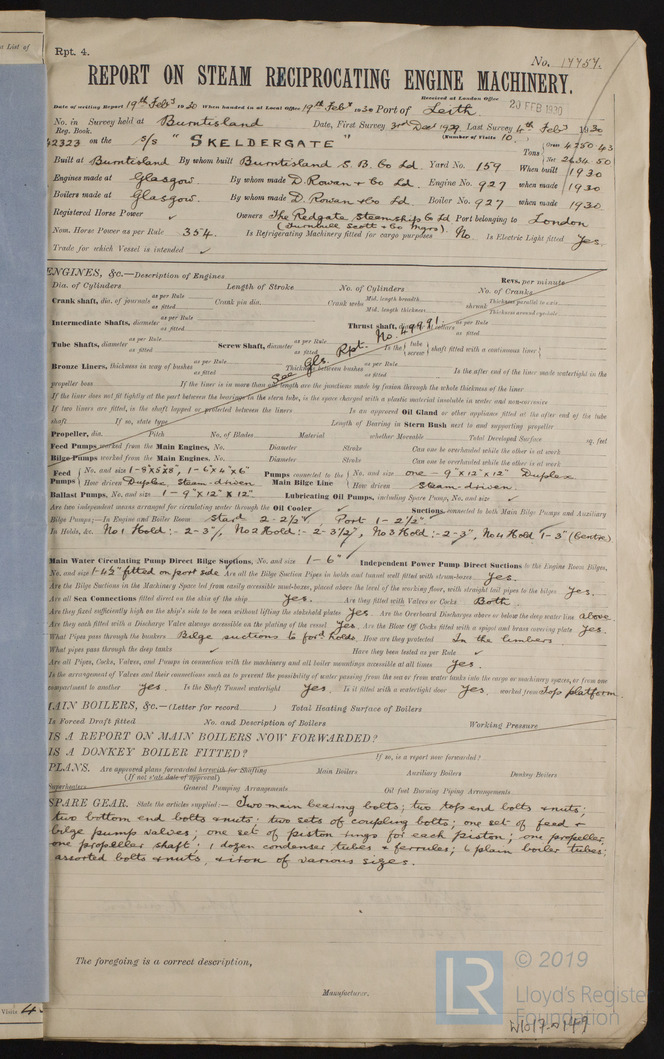 a List of
Rpt. 4.
No. 17757.
REPORT ON STEAM RECIPROCATING ENGINE MACHINERY.
Received at London Office
20 FEB 1930
Date of writing Report 19th Feby 1930 When handed in at Local Office 19th Feby 1930 Port of Leith
No. in Survey held at Burntisland Date, First Survey 3rd Decr 1929 Last Survey 4th Feby 1930
Reg. Book.
(Number of Visits 10.
42323 on the S/S "SKELDERGATE" Tons Gross 4250.43
Net 2634.50
Built at Burntisland By whom built Burntisland S. B. Co Ld. Yard No. 159 When built 1930
Engines made at Glasgow. By whom made D. Rowan & Co Ld. Engine No. 927 when made 1930
Boilers made at Glasgow. By whom made D. Rowan & Co Ld. Boiler No. 927 when made 1930
Registered Horse Power Owners The Redgate Steamship Co Ld Port belonging to London
(Turnbull Scott & Co Mgrs).
Nom. Horse Power as per Rule 354. Is Refrigerating Machinery fitted for cargo purposes No. Is Electric Light fitted Yes.
Trade for which Vessel is intended
ENGINES, &c.—Description of Engines Revs. per minute
Dia. of Cylinders Length of Stroke No. of Cylinders No. of Cranks
Crank shaft, dia. of journals as per Rule as fitted Crank pin dia. Crank webs Mid. length breadth Mid. length thickness shrunk Thickness parallel to axis Thickness around eye-hole
Intermediate Shafts, diameter as per Rule as fitted Thrust shaft, diameter at collars as per Rule as fitted
Tube Shafts, diameter as per Rule as fitted Screw Shaft, diameter as per Rule as fitted Is the tube screw shaft fitted with a continuous liner
See Gls. Rpt. No. 49991.
Bronze Liners, thickness in way of bushes as per Rule as fitted Thickness between bushes as per Rule as fitted Is the after end of the liner made watertight in the
propeller boss If the liner is in more than one length are the junctions made by fusion through the whole thickness of the liner
If the liner does not fit tightly at the part between the bearings in the stern tube, is the space charged with a plastic material insoluble in water and non-corrosive
If two liners are fitted, is the shaft lapped or protected between the liners Is an approved Oil Gland or other appliance fitted at the after end of the tube
shaft If so, state type Length of Bearing in Stern Bush next to and supporting propeller
Propeller, dia. Pitch No. of Blades Material whether Moveable Total Developed Surface sq. feet
Feed Pumps worked from the Main Engines, No. Diameter Stroke Can one be overhauled while the other is at work
Bilge Pumps worked from the Main Engines, No. Diameter Stroke Can one be overhauled while the other is at work
Feed Pumps No. and size 1-8"x5"x8", 1-6"x4"x6" Pumps connected to the Main Bilge Line No. and size one - 9"x12"x12" Duplex
How driven Duplex Steam-driven How driven Steam-driven.
Ballast Pumps, No. and size 1 - 9"x12"x12" Lubricating Oil Pumps, including Spare Pump, No. and size
Are two independent means arranged for circulating water through the Oil Cooler Suctions, connected to both Main Bilge Pumps and Auxiliary
Bilge Pumps;—In Engine and Boiler Room Starb 2-2½", Port 1-2½"
In Holds, &c. No 1 Hold :- 2-3", No 2 Hold :- 2-3½", No 3 Hold :- 2-3", No 4 Hold 1-3" (Centre)
Main Water Circulating Pump Direct Bilge Suctions, No. and size 1-6" Independent Power Pump Direct Suctions to the Engine Room Bilges,
No. and size 1-4½" fitted on port side Are all the Bilge Suction Pipes in holds and tunnel well fitted with strum-boxes Yes.
Are the Bilge Suctions in the Machinery Space led from easily accessible mud-boxes, placed above the level of the working floor, with straight tail pipes to the bilges Yes.
Are all Sea Connections fitted direct on the skin of the ship Yes. Are they fitted with Valves or Cocks Both
Are they fixed sufficiently high on the ship's side to be seen without lifting the stokehold plates Yes Are the Overboard Discharges above or below the deep water line above
Are they each fitted with a Discharge Valve always accessible on the plating of the vessel Yes. Are the Blow Off Cocks fitted with a spigot and brass covering plate Yes.
What Pipes pass through the bunkers Bilge suctions to ford holds. How are they protected In the limbers
What pipes pass through the deep tanks Have they been tested as per Rule
Are all Pipes, Cocks, Valves, and Pumps in connection with the machinery and all boiler mountings accessible at all times Yes.
Is the arrangement of Valves and their connections such as to prevent the possibility of water passing from the sea or from water tanks into the cargo or machinery spaces, or from one
compartment to another Yes. Is the Shaft Tunnel watertight Yes. Is it fitted with a watertight door Yes. worked from Top platform.
MAIN BOILERS, &c.—(Letter for record ) Total Heating Surface of Boilers
Is Forced Draft fitted No. and Description of Boilers Working Pressure
IS A REPORT ON MAIN BOILERS NOW FORWARDED?
IS A DONKEY BOILER FITTED? If so, is a report now forwarded?
PLANS. Are approved plans forwarded herewith for Shafting Main Boilers Auxiliary Boilers Donkey Boilers
(If not state date of approval)
Superheaters General Pumping Arrangements Oil fuel Burning Piping Arrangements
SPARE GEAR. State the articles supplied:— Two main bearing bolts; two top end bolts & nuts;
two bottom end bolts & nuts; two sets of coupling bolts; one set of feed &
bilge pump valves; one set of piston rings for each piston; one propeller;
one propeller shaft; 1 dozen condenser tubes & ferrules; 6 plain boiler tubes;
assorted bolts & nuts, & iron of various sizes.
The foregoing is a correct description,
Manufacturer.
Visits 4
LR
© 2019
Lloyd's Register
Foundation
W1017-0149